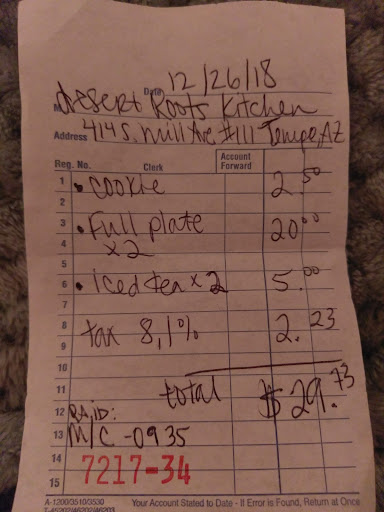 Date 12/26/18
M
Desert Roots Kitchen
Address 414 S. Mill Ave #111 Tempe, AZ
Reg. No. Clerk Account Forward
1 • Cookie 2.50
2
3 • Full plate 20.00
4 x2
5
6 • iced tea x 2 5.00
7
8 tax 8,1% 2.23
9
10
11 total $29.73
12 PAID:
13 M/C -0935
14 7217-34
15
A-1200/3510/3530 Your Account Stated to Date - If Error is Found, Return at Once
T-45202/46202/46203